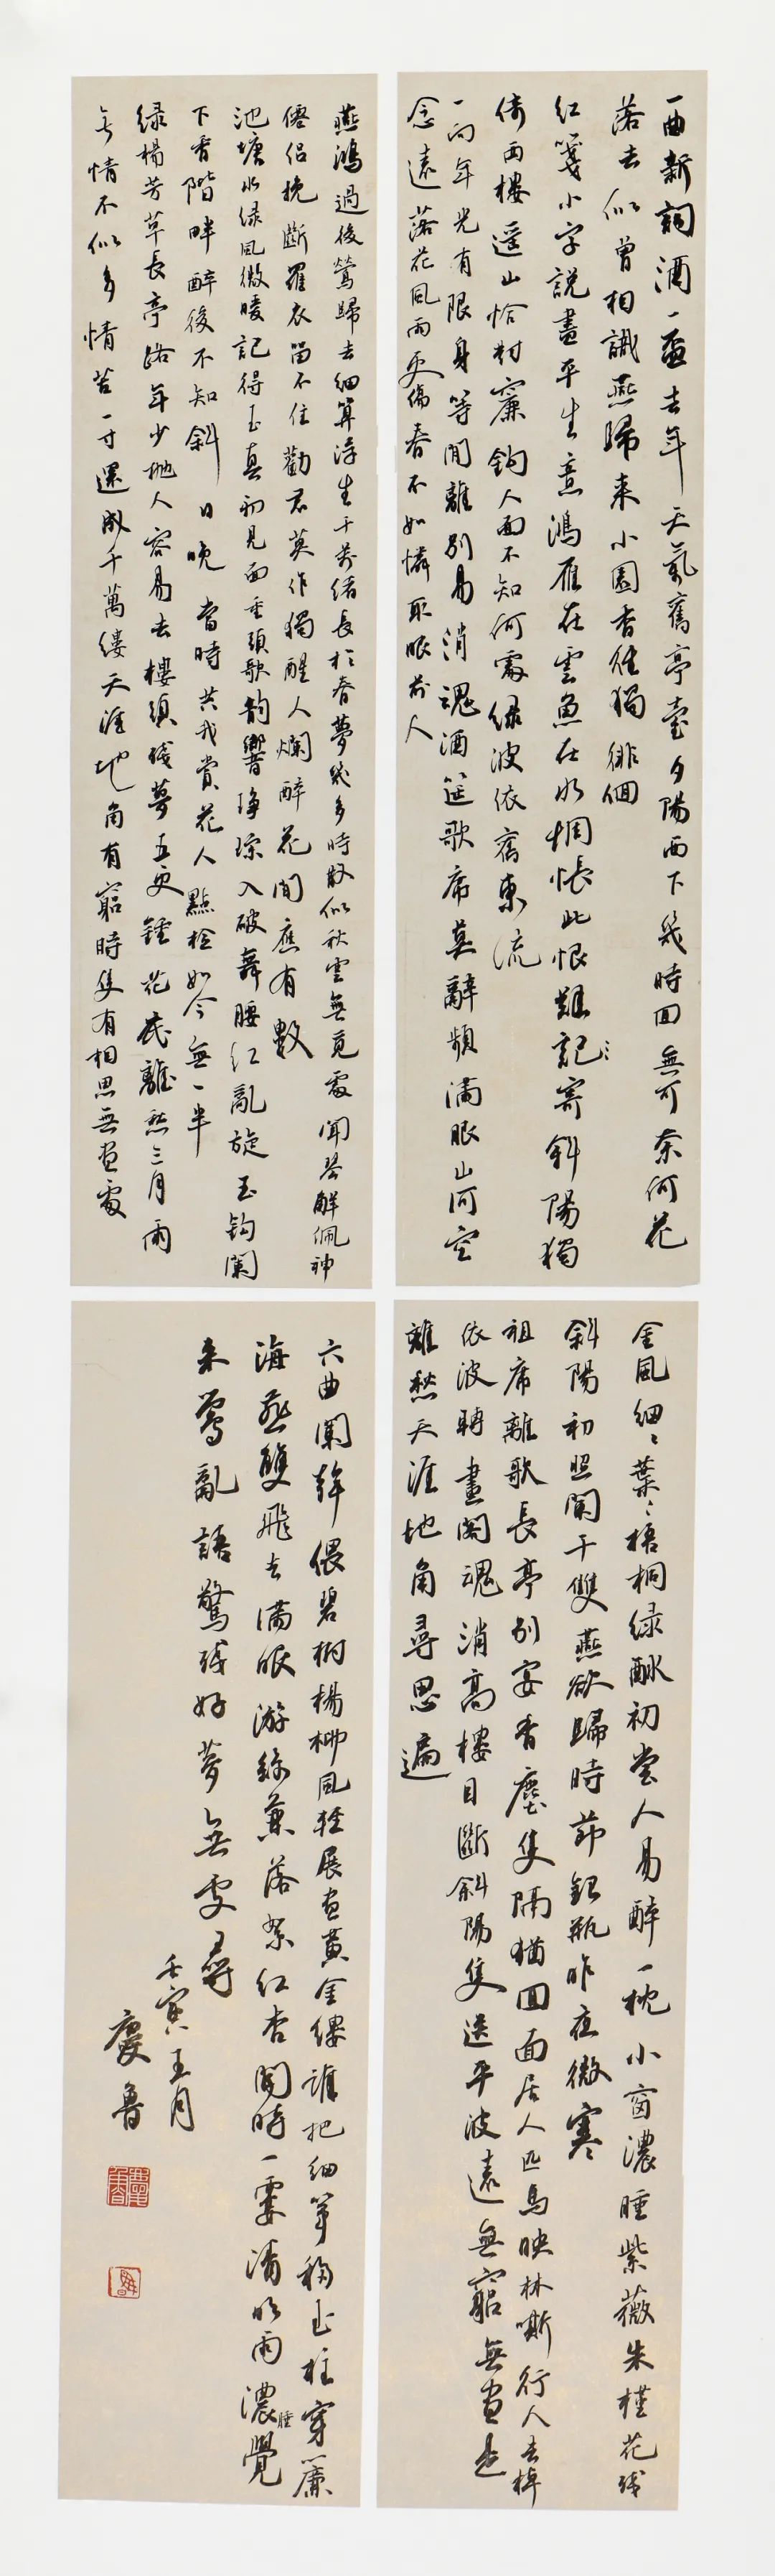 一曲新詞酒一盃去年天氣舊亭臺夕陽西下幾時回無可奈何花
落去似曾相識燕歸来小園香徑獨徘徊
紅箋小字說盡平生意鴻雁在雲魚在水惆悵此恨難記寄斜陽獨
倚西樓遥山恰對簾鈎人面不知何處緑波依舊東流
一向年光有限身等閒離别易消魂酒筵歌席莫辭頻滿眼山河空
念遠落花風雨更傷春不如憐取眼前人
燕鴻過後鶯歸去細算浮生千萬緒長於春夢幾多時散似秋雲無覓處聞琴解佩神
僊侣挽斷羅衣留不住勸君莫作獨醒人爛醉花間應有數
池塘水緑風微暖記得玉真初見面重頭歌韵響琤琮入破舞腰紅亂旋玉鈎闌
下香階畔醉後不知斜日晚當時共我賞花人點檢如今無一半
緑楊芳草長亭路年少抛人容易去樓頭殘夢五更鐘花底離愁三月雨
無情不似多情苦一寸還成千萬縷天涯地角有窮時隻有相思無盡處
金風細〻葉〻梧桐緑酥初嘗人易醉一枕小窗濃睡紫薇朱槿花殘
斜陽初照闌干雙燕欲歸時節銀瓶昨夜微寒
祖席離歌長亭别宴香塵隻隔猶回面居人匹馬映林嘶行人去棹
依波轉畫閣魂消高樓目斷斜陽隻送平波遠無窮無盡是
離愁天涯地角尋思遍
六曲闌干偎碧樹楊柳風輕展盡黄金縷誰把鈿筝移玉柱穿簾
海燕雙飛去滿眼游絲兼落絮紅杏開時一霎清明雨濃睡覺
来鶯亂語驚殘好夢無處尋
壬寅五月
慶魯